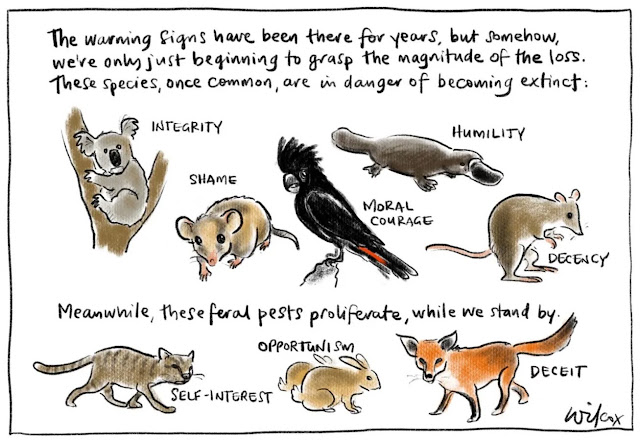 The warning signs have been there for years, but somehow,
we're only just beginning to grasp the magnitude of the loss.
These species, once common, are in danger of becoming extinct:
INTEGRITY
HUMILITY
SHAME
MORAL
COURAGE
DECENCY
Meanwhile, these feral pests proliferate, while we stand by.
OPPORTUNISM
DECEIT
SELF-INTEREST
Wilcox